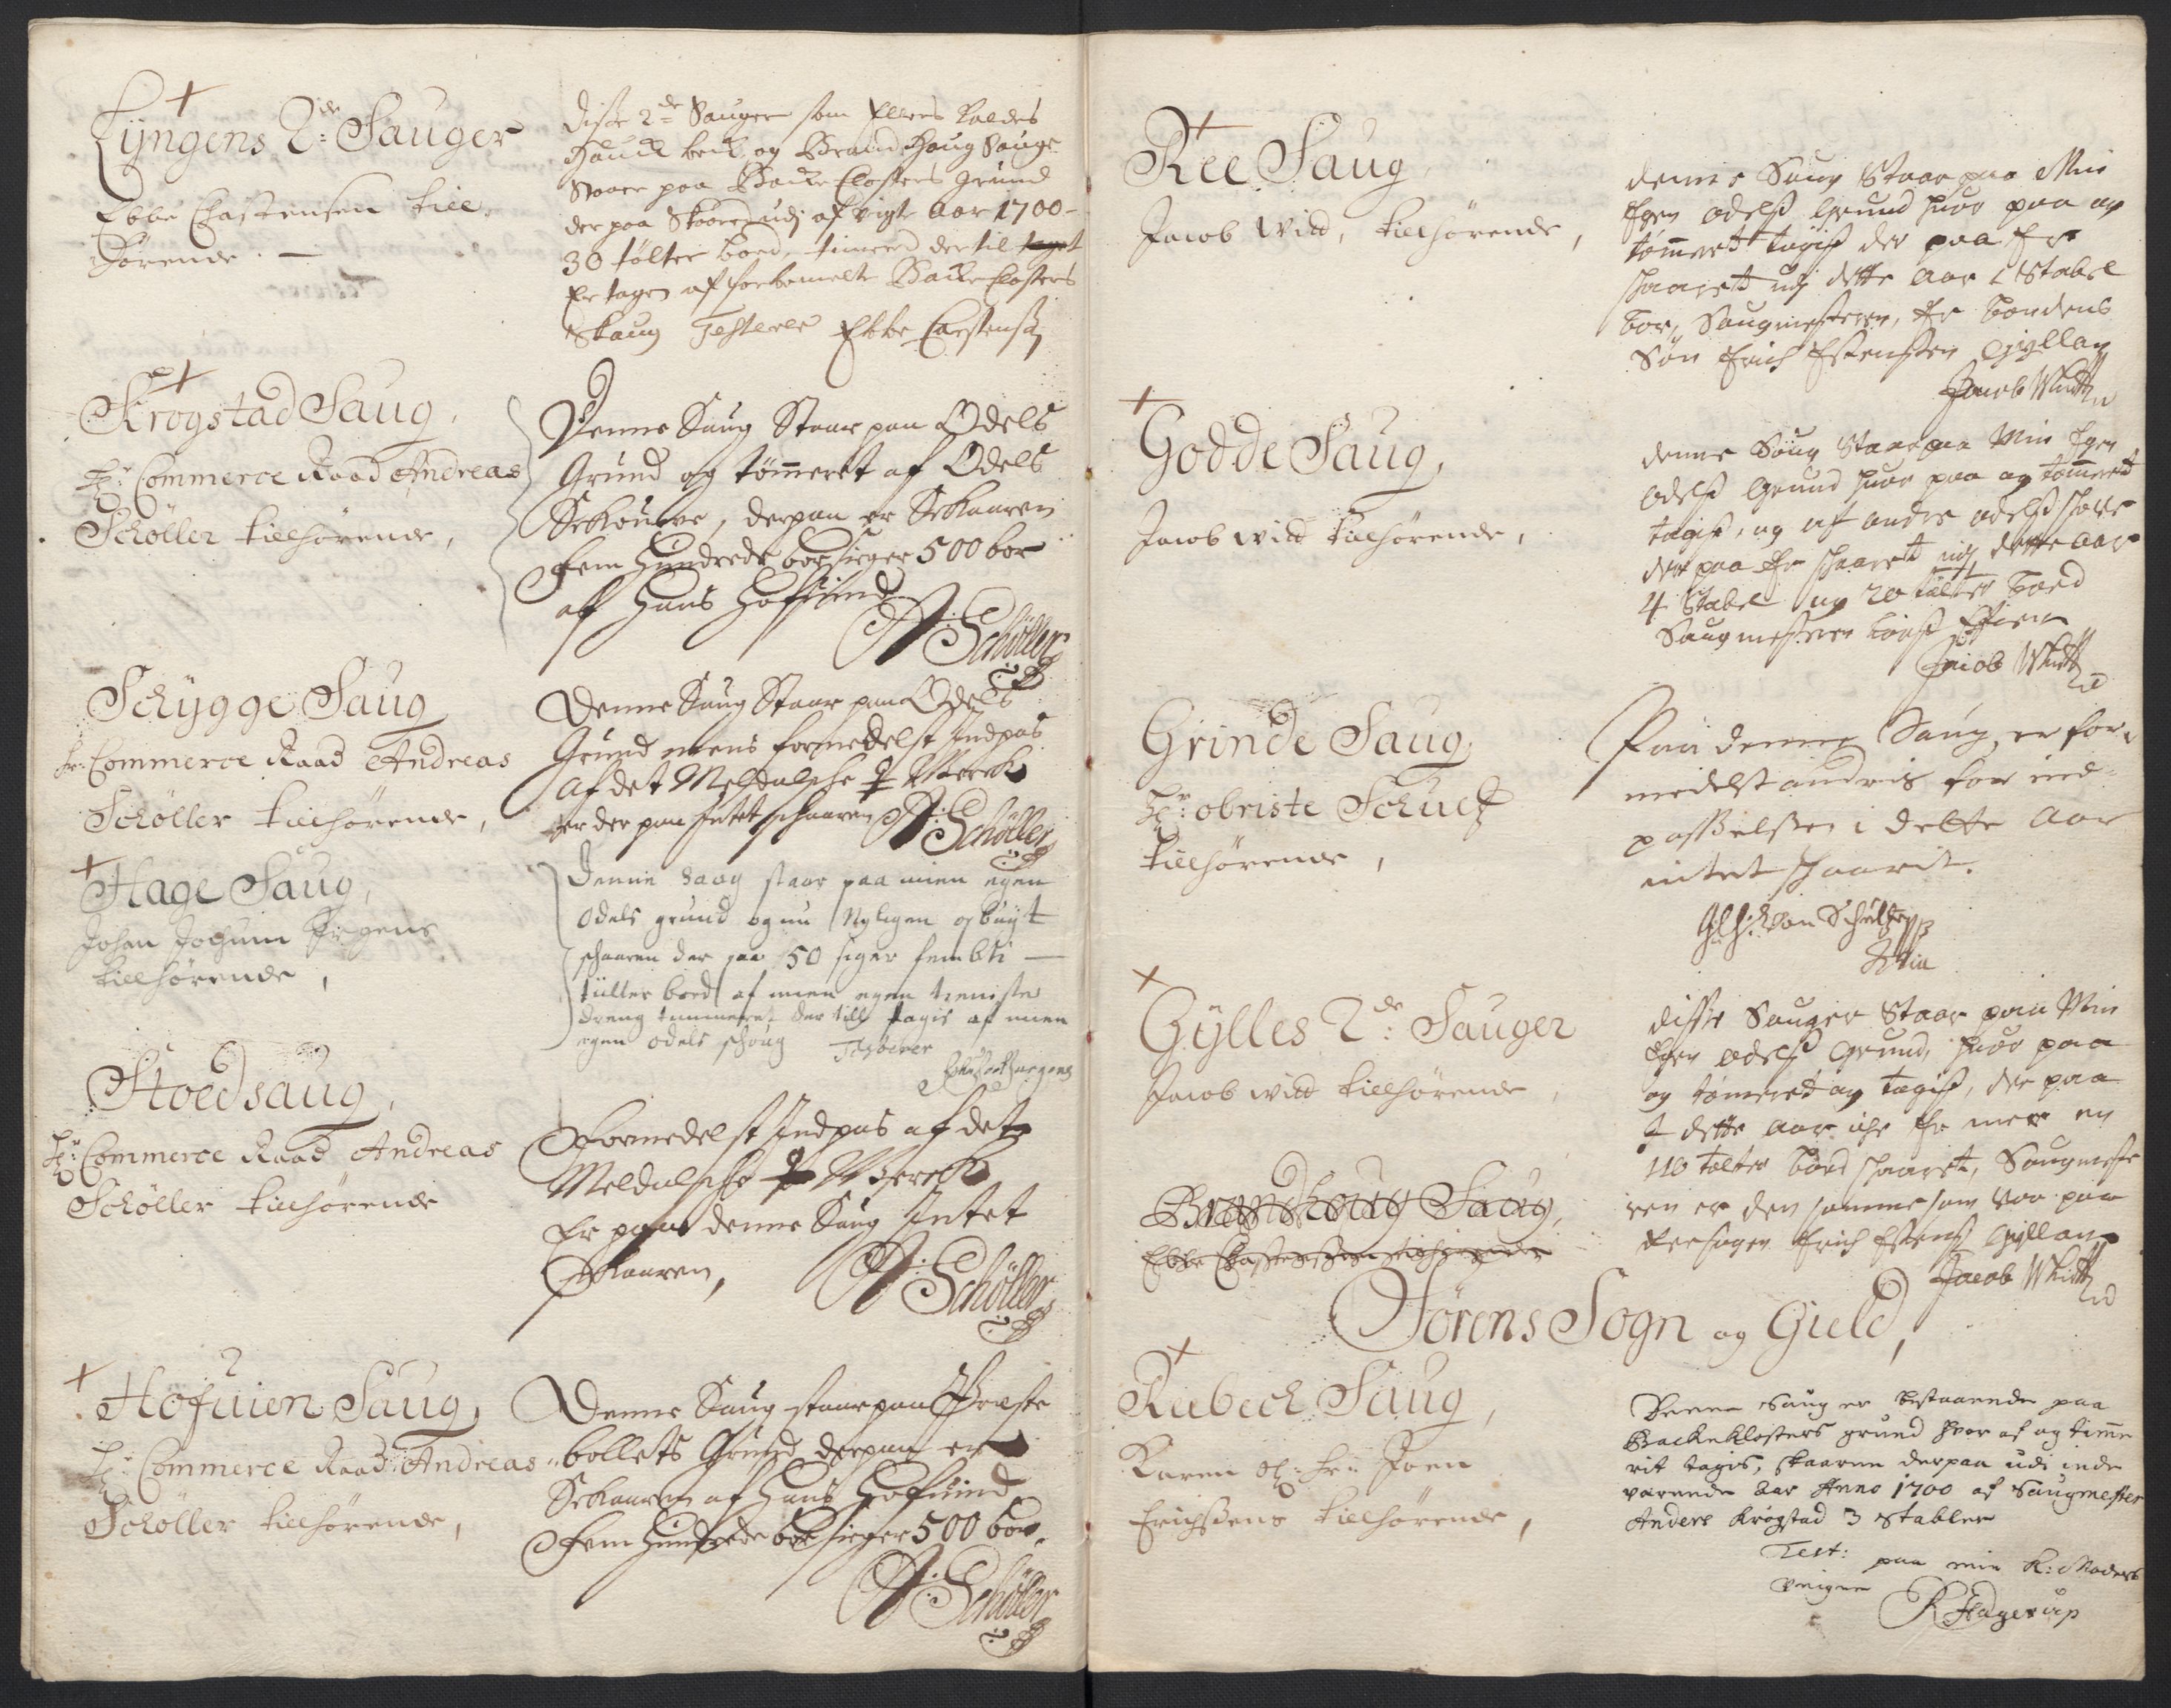 Lÿngens 2de Sauger
Ebbe Chastensen till
hörende. —
Disse 2de Sauger som Ellers Kaldes
Hauck beck og Brand Haug Sauge
Staaer paa Backe Closters grund
der paa Skaaredt udj af vigte Aar 1700-
30 tölter bord, timered der til taget
Er tagen af forbemelte Backe Closters
Skaug Testerer Ebbe Carstens:
Krogstad Saug,
Hr: Commerce Raad Andreas
Schöller tillhörende,
Denne Saug Staar paa Odels
Grund og tömmeret af Odels
Schoufve, derpaa er Schaaren
Fem Hundrede bor siger 500 bor
af Hans Hoffuind
A: Schöller
Schÿgge Saug
Hr: Commerce Raad Andreas
Schöller tillhörende,
Denne Saug Staar paa Odels
Grund mens formedelst Indpas
af det Meldalsche ♀ Werck
er der paa Intet schaaren
A: Schöller
Hage Saug,
Johan Jochum Jürgens
tillhörende,
Denne Saag staar paa mien egen
Odels grund og nu Nyligen opbugt
schaaren der paa 50 siger fembti —
tülter bord af mien egen tieniste
dreng tømmeret der till tagis af mien
egen odels schoug
Stoedsaug,
Hr: Commerce Raad Andreas
Schöller tillhörende
Formedelst Indpas af det
Meldalsche ♀ Werck
Er paa denne Saug Intet
Schaaren,
A: Schöller
Hofuien Saug,
Hr: Commerce Raad Andreas
Schöller tillhörende,
Denne Saug staar paa Præste
bollets Grund, derpaa er
Schaaren af Hans Hoffuind
Fem Hundrede bor siger 500 bor.
A: Schöller
Ree Saug,
Jacob Witd, tillhörende,
denne Saug Staar paa Min
Egen odelß Grund huor paa og
tömmert tagiß der paa Er
schaarett udj dette Aar 2 Stabel
bor, Saugmesteren, Er bondens
Sön Erich Estensen Gyllan
Jacob Whitt
Godde Saug,
Jacob Witd tillhörende,
denne Saug Staar paa Min Egen
odelß Grund huor paa og tömmert
tagiß, og af andre odelß schoge
der paa Er schaarett udj dette Aar
4 Stabel og 20 tölter bord
Saugmesteren
Jacob Whitt
Grinde Saug
Hr: obriste Schultz
tillhörende,
Paa denne Saug er for-
medelst andris for ind-
passelsen i dette Aar
intet schaarit.
von Schultz
Gÿlles 2de: Sauger
Jacob Witd tillhörende,
disse Sauger Staar paa Min
Egen odelß Grund, huor paa
og tömmeret og tagiß, der paa
I dette Aar iche Er mer en
110 tölter bord schaaret, Saugmeste
ren er den samme som var paa
Reesagen Erich Estens: Gyllan
Jacob Whitt
Brandhoug Saug,
Ebbe Chastensen tilhörende
Störens Sogn og Gield,
Rebeck Saug,
Karen Sl: Hr: Joen
Erichßens tillhörende,
Denne Saug er bestaaende paa
Backeklosters grund hvor af og timme
rit tages, skaaren derpaa udi inde
værende Aar Anno 1700 af Saugmester
Anders Krogstad 3 Stabler
Test: paa min K: Moders
veigne
R Hagerup